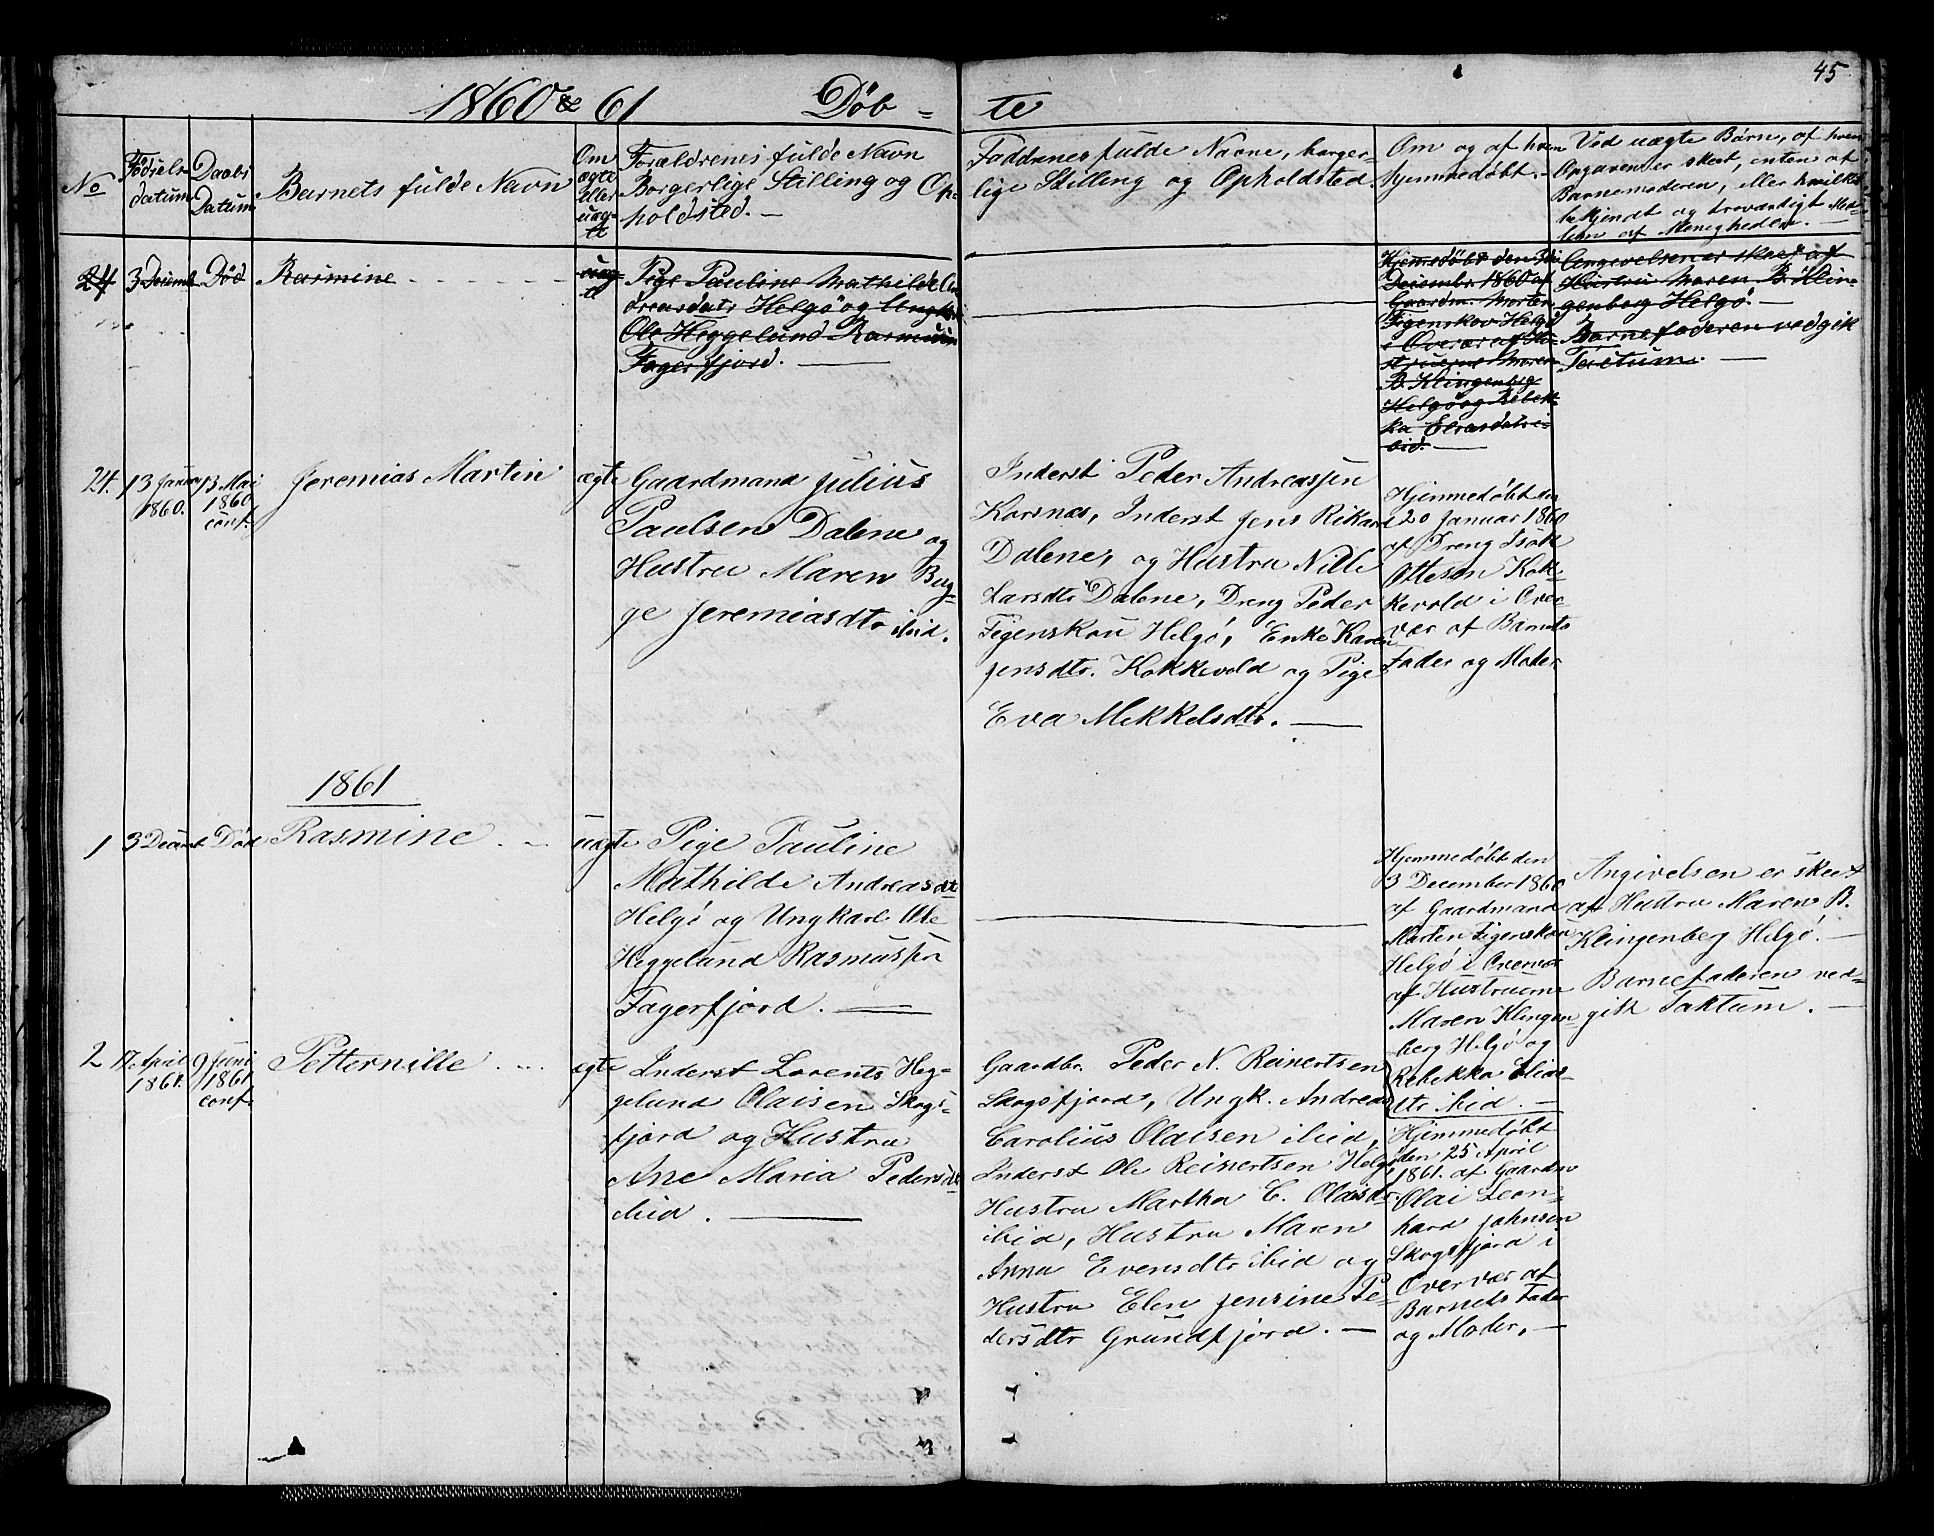 45
1860 & 61 Døb-te
No
Fødsels datum
Daabs Datum
Barnets fulde Navn
Om ægte eller uæg-te
Forældrenes fulde Navn
Borgerlige Stilling og Op-
holdsted. —
Faddrenes fulde Navne, borger-
lige Stilling og Opholdsted.
Om og af hvem
hjemmedøbt. -
Ved uægte Børn, af hvem
Opgaven er skeet, enten af
Barnemoderen, eller hvilket
bekjendt og troværdigt Med-
lem af Menigheden. —
24 3 Decemb Død Rasmine - - - - - uæg-
te
Pige Pauline Mathilde An
dreasdatr Helgø og Ungkarl
Ole Heggelund Rasmussen
Fagerfjord. —
Hjemmedøbt den 3die
Decembr. 1860 af
Gaardm. Morten
Figenskou Helgø
i Overvær af Hu-
struerne Maren
B. Klingenberg
Helgø og Rebek-
ka Eliasdatr i-
bid. —
Angivelsen er skeet af
Hustru Maren B. Klin-
genberg Helgø. —
Barnefaderen vedgik
Factum. —
24. 13 Januar
1860.
13 Mai
1860
conf.
Jeremias Martin
ægte
Gaardmand Julius
Paulsen Dalene og
Hustru Maren Bug-
ge Jeremiasdtr ibid.
Inderst Peder Andreassen
Korsnæs, Inderst Jens Rikard
Dalene, og Hustru Nille
Larsdtr Dalene, Dreng Peder
Figenskou Helgø, Enke Karen
Jensdtr. Kokkevold og Pige
Eva Mikkelsdtr. —
Hjemmedøbt den
20 Januar 1860
af Dreng Isak
Ottesen Kok-
kevold i Over-
vær af Barnets
Fader og Moder
1861
1 3 Decemb Død Rasmine - - uægte
Pige Pauline
Mathilde Andreasdt
Helgø og Ungkarl Ole
Heggelund Rasmussen
Fagerfjord. —
Hjemmedøbt den
3 December 1860
af Gaardmand
Morten Figenskou
Helgø i Overvær
af Hustruerne
Maren Klingen
berg Helgø og
Rebekka Elias-
dtr ibid. —
Angivelsen er skeet
af Hustru Maren B.
Klingenberg Helgø. —
Barnefaderen ved-
gik Faktum. —
2 17 April
1861.
9 Juni
1861
conf.
Petternille - - - ægte
Inderst Lorents Heg-
gelund Olaisen Skogs-
fjord og Hustru
Ane Maria Pedersdt
ibid. —
Gaardbr. Peder N. Reinertsen
Skogsfjord, Ungk. Andreas
Carolius Olaisen ibid,
Inderst Ole Reinertsen Helgø
Hustru Martha E. Olaisdr.
ibid, Hustru Maren
Anna Evensdtr ibid og
Hustru Elen Jensine Pe-
dersdtr Grundfjord. —
Hjemmedøbt
den 25 April
1861. af Gaardm
Olai Leon-
hard Johnsen
Skogsfjord i
Overvær af
Barnets Fader
og Moder. —